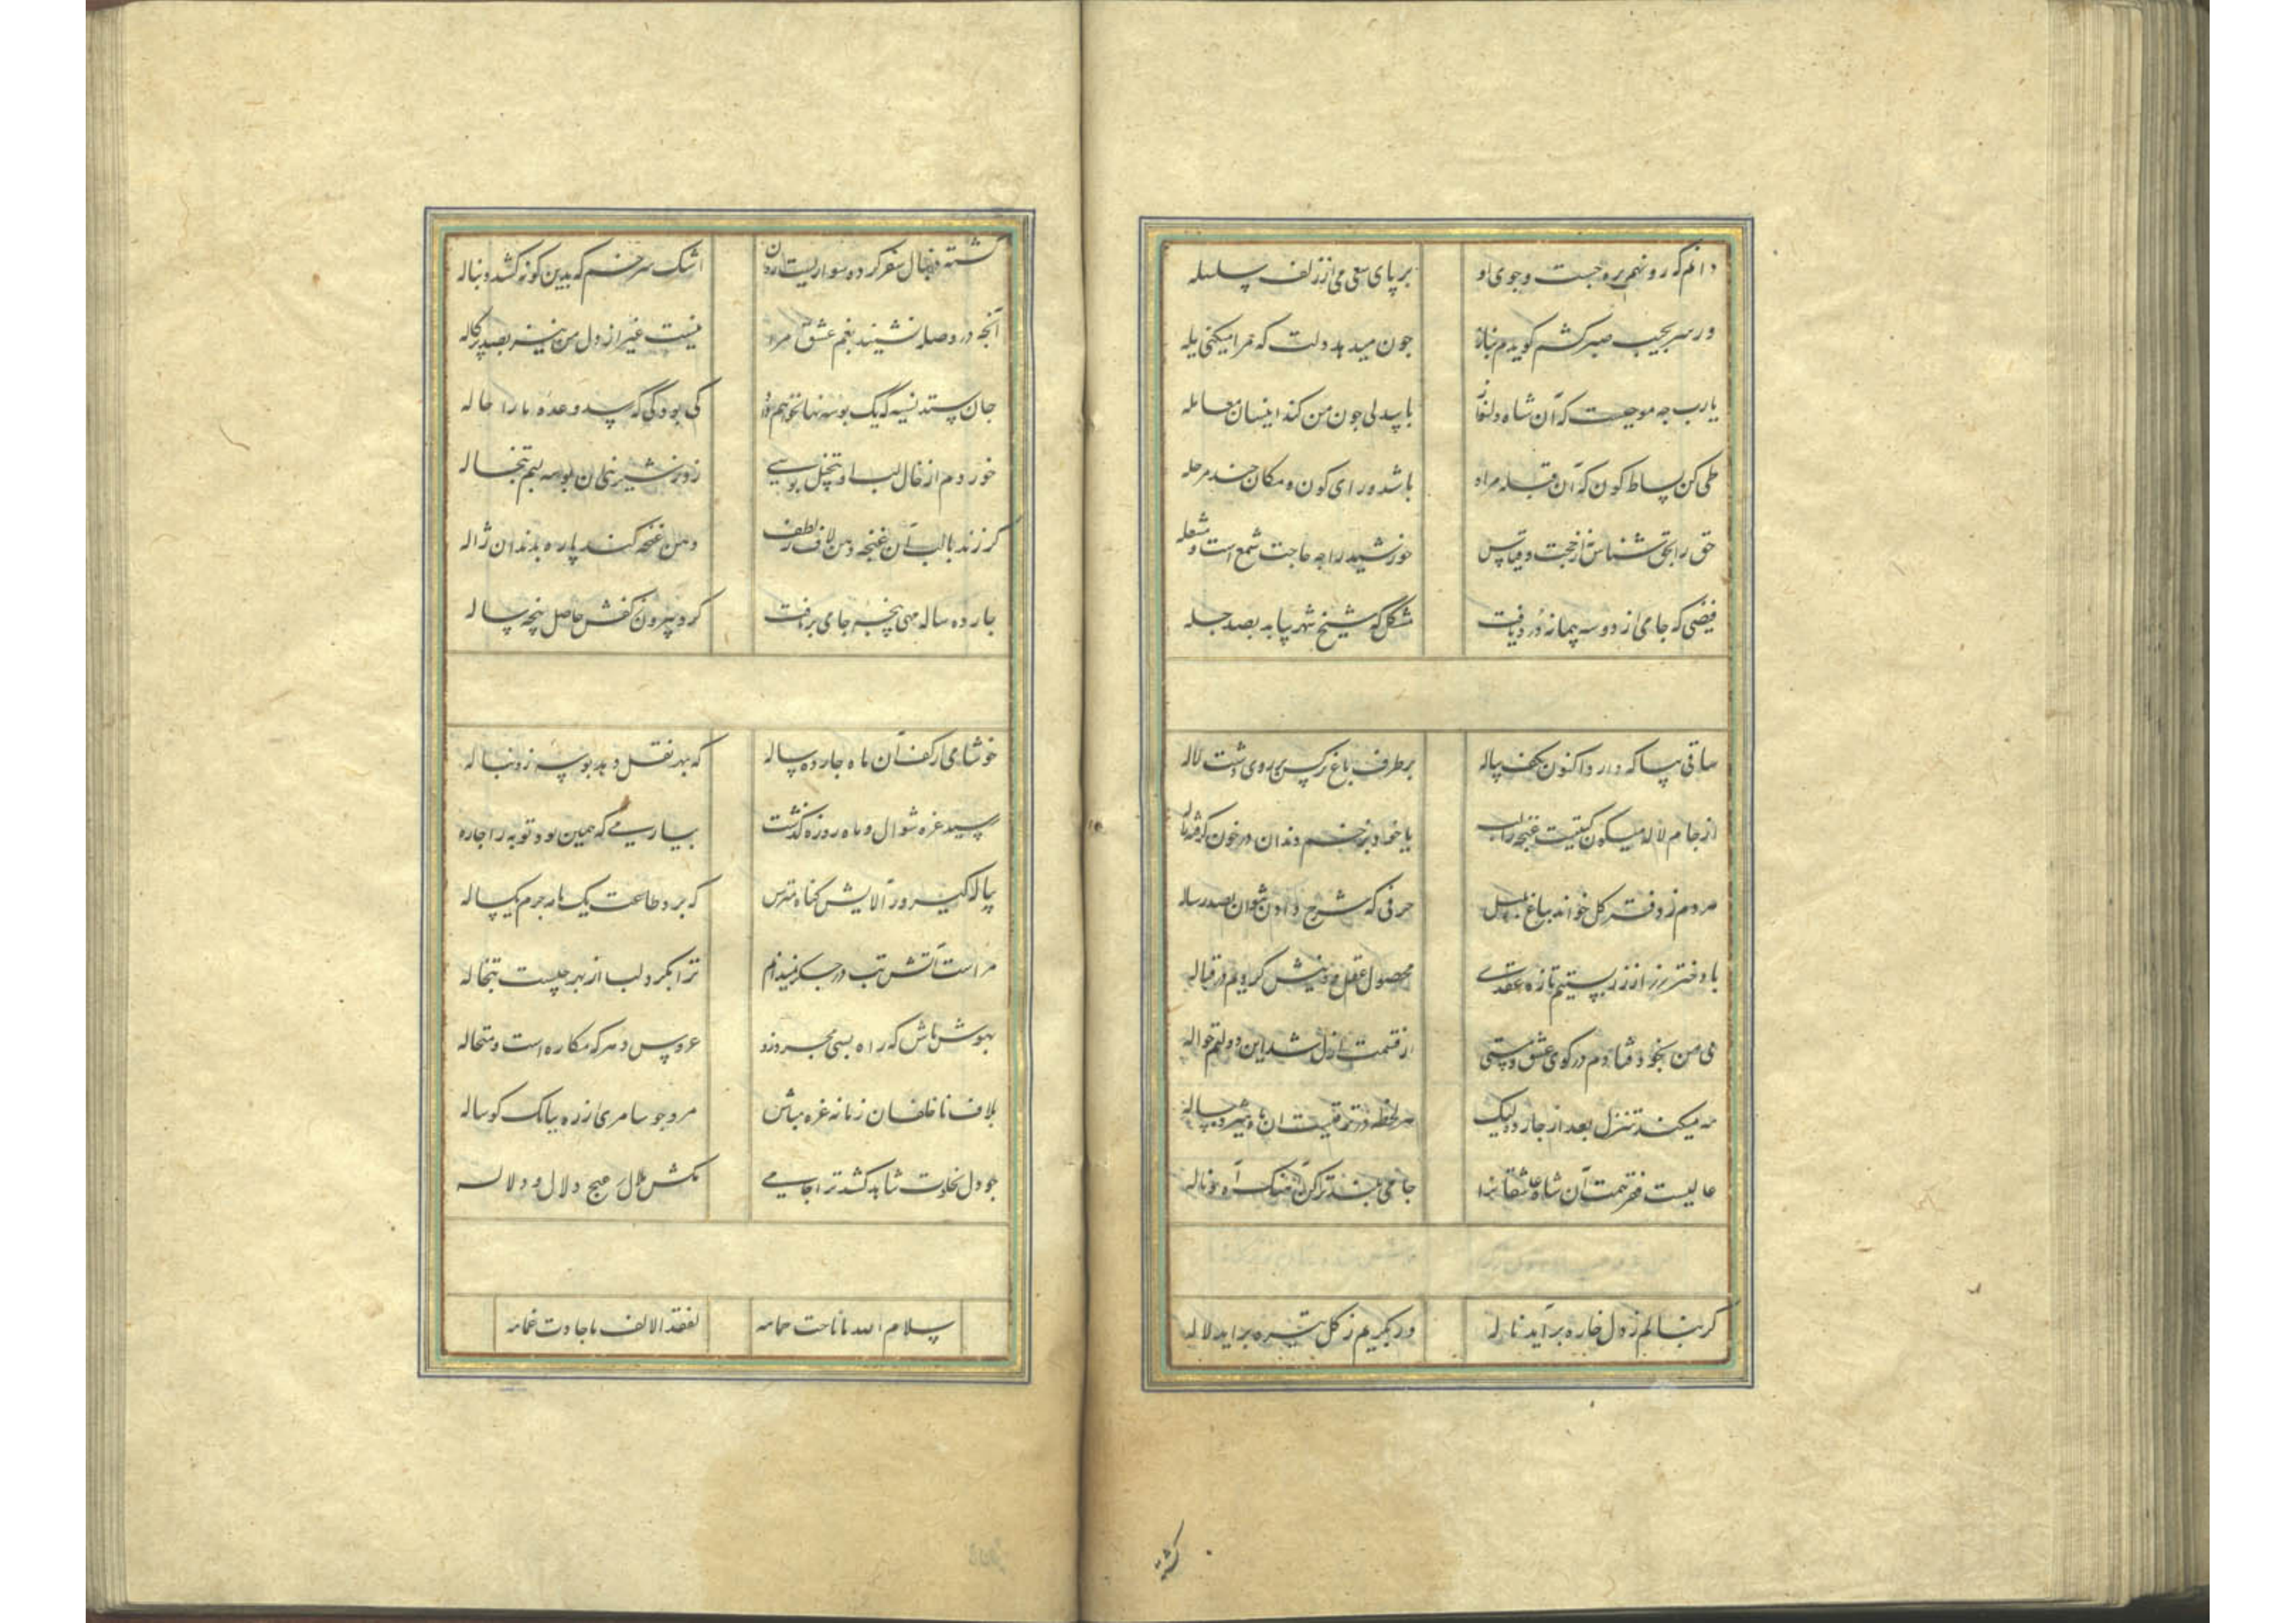 دانم که رو نهم بره جست و جوی او بر پای سعی می از زلف سلسله
ور سر بجیب صبر کشم کویدم بناز جون میدهد دلت که مرا میکنی یله
یارب جه موجبست که آن شاه دلنواز با بیدلی جون من کند اینسان معامله
طی کن بساط کون که آن قبله مراد باشد ورای کون و مکان جند مرحله
حق را بحق شناس نه از حجت و قیاس خورشید را چه حاجت شمع است و مشعله
فیضی که جامی از دو سه پیمانه درد یافت مشکل که شیخ شهر بیابد بصد جله
ساقی بیا که دارد اکنون بکف پیاله بر طرف باغ نرکس بر روی دشت لاله
از جام لاله میکون نیست غنجه را لب یا خود بزخم دندان در خون کرفته ژاله
مردم ز دفتر کل خواند بباغ بلبل حرفی که شرح دادن نتوان بصد رساله
با دختر رز از زر بستیم تازه عقدی محصول عقل و دینش کردیم در قباله
نی من بخود فتادم در کوی عشق و مستی از قسمت ازل شد این دولتم حواله
مه میکند تنزل بعد از جارده لیک هر لحظه در ترقیست آن ماه شیرده ساله
عالیست قصر همت آن شاه عاشقانرا جامی بلند ترکن آهنک آه و ناله
کر بنالم ز دل خاره برآید ناله ور بکریم ز کل تیره براید لاله
کشته
کشته دنبال سفر کرده سواریست روان اشک سرخم که بدین کونه کشد دنباله
آنجه در وصله نشیند بغم عشق مرا نیست غیر از دل من نیز بصد پرکاله
جان ستد نسیه که یک بوسه بها خواهم داد کی بود کی که رسد وعده ما را حاله
خوردم از خال لب او بتخیل بوسی زد ز شیرینی آن بوسه لبم تبخاله
کر زند با لب آن غنجه دهن لاف ز لطف دهن غنجه کند پاره بدندان ژاله
جارده ساله مهی پنجه جامی برتافت کرد بیرون ز کفش حاصل پنجه ساله
خوشا می از کف آن ماه جارده ساله که بهر نقل دهد بوسه ز دنباله
رسید غره شوال و ماه روزه کذشت بیار می که همین بود توبه را جاره
پیاله کیر و ز آلایش کناه مترس که برد طاعت یک ماهه جرم یکساله
مراست آتش تب در جکر نمیدانم ترا بکرد لب از بهر چیست تبخاله
بهوش باش که راه بسی مجرد زد عروس دهر که مکاره است و محتاله
بلاف ناخلفان زمانه غره مباش مرو جو سامری از ره ببانک کوساله
جو دل بخلوت شاهد کشد ترا جامی مکش ملال ز هیج دلال و دلاله
سلام الله ما ناحت حمامه لفقد الالف ما جادت غمامه